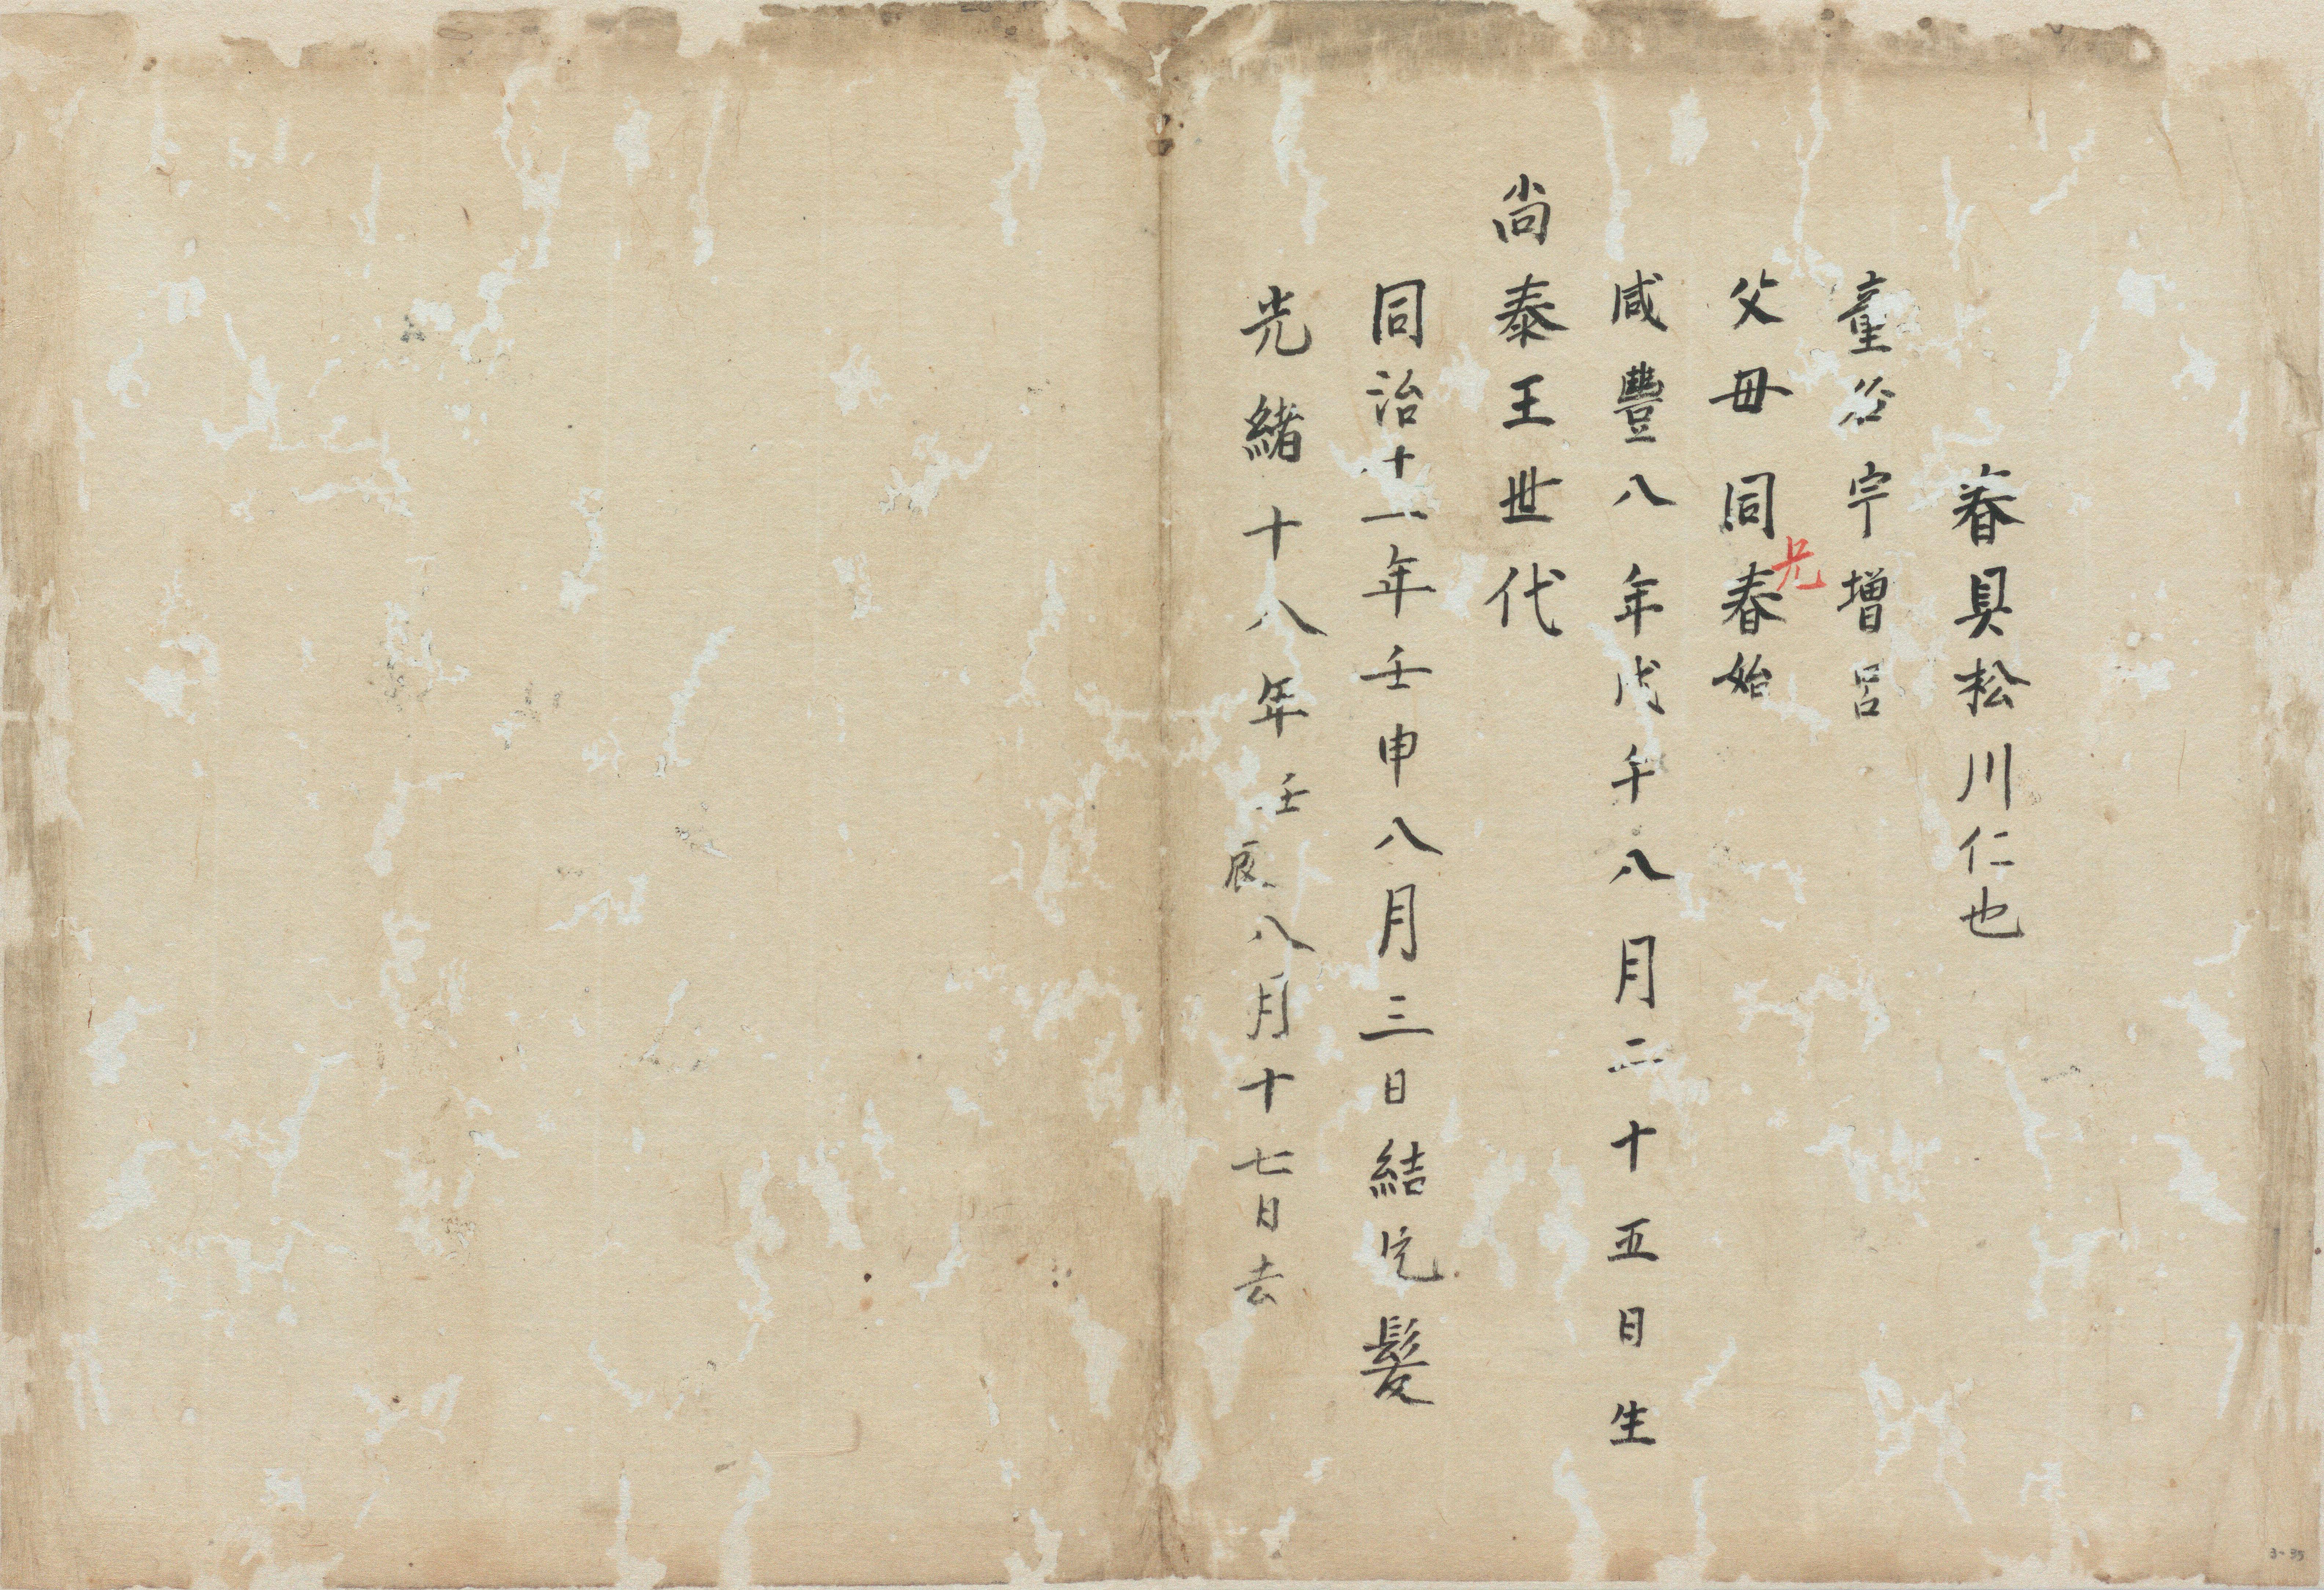 春貝松川仁也
童名宇增呂
父母同兄春始
咸豐八年戊午八月二十五日生
尚泰王世代
同治十一年壬申八月三日結完髮
光緒十八年壬辰八月十七日去
3-35